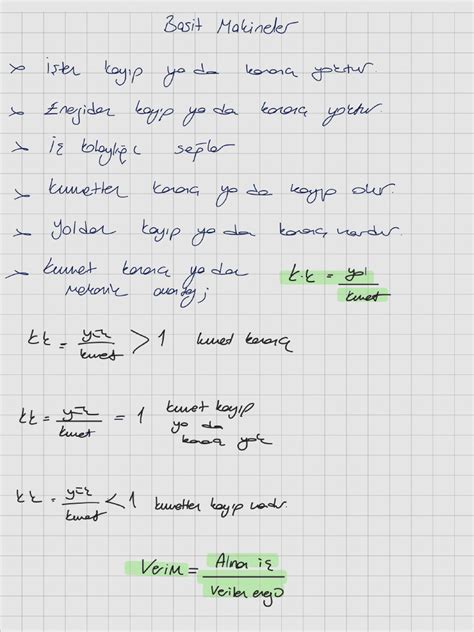 Basit Makineler
> işten kayıp ya da kazanç yoktur.
> Enerjiden kayıp ya da kazanç yoktur.
> iş kolaylığı sağlar
> kuvvetten kazanç ya da kayıp olur.
> yoldan kayıp ya da kazanç vardır.
> kuvvet kazancı ya da
mekanik avantaj;
k.k = yol / kuvvet
kk = yük / kuvvet > 1 kuvvet kazancı
kk = yük / kuvvet = 1 kuvvet kayıp
ya da
kazanç yok
kk = yük / kuvvet < 1 kuvvetten kayıp vardır.
Verim = Alınan iş / Verilen enerji